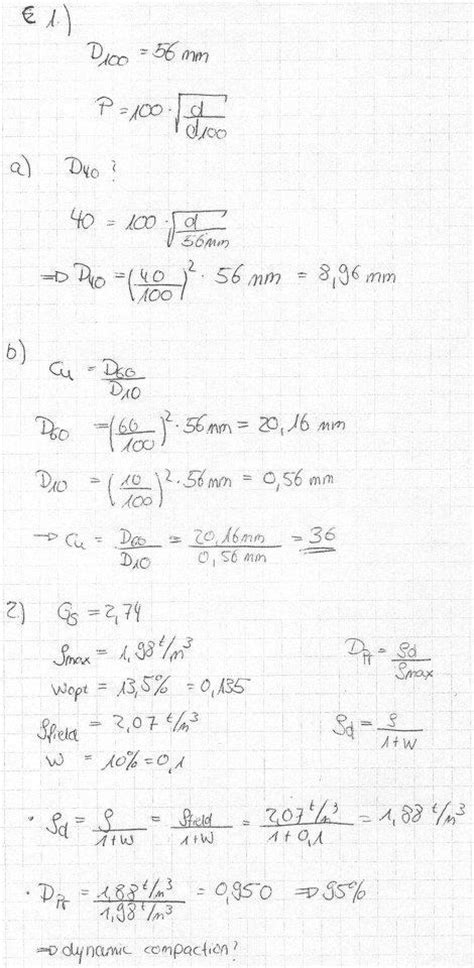 1.)
D100 = 56 mm
P = 100 · √(d/d100)
a) D40 ?
40 = 100 · √(d/56mm)
⇒ D40 = (40/100)² · 56 mm = 8,96 mm
b) Cu = D60/D10
D60 = (60/100)² · 56 mm = 20,16 mm
D10 = (10/100)² · 56 mm = 0,56 mm
→ Cu = D60/D10 = 20,16mm/0,56 mm = 36
2) Gs = 2,74
ρmax = 1,98 t/m³
wopt = 13,5% = 0,135
DPr = ρd/ρmax
ρfield = 2,07 t/m³
w = 10% = 0,1
ρd = ρ/1+w
· ρd = ρ/1+w = ρfield/1+w = 2,07 t/m³/1+0,1 = 1,88 t/m³
· DPr = 1,88 t/m³/1,98 t/m³ = 0,950 ⇒ 95%
⇒ dynamic compaction?